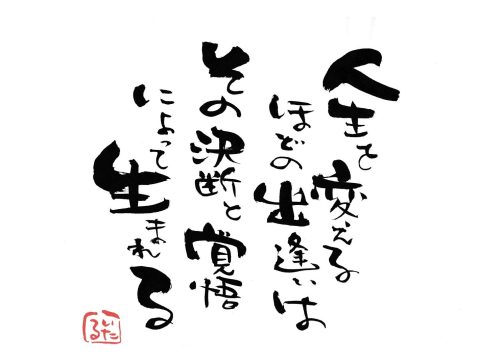 人生を変える
ほどの出逢いは
その決断と覚悟
によって
生まれる